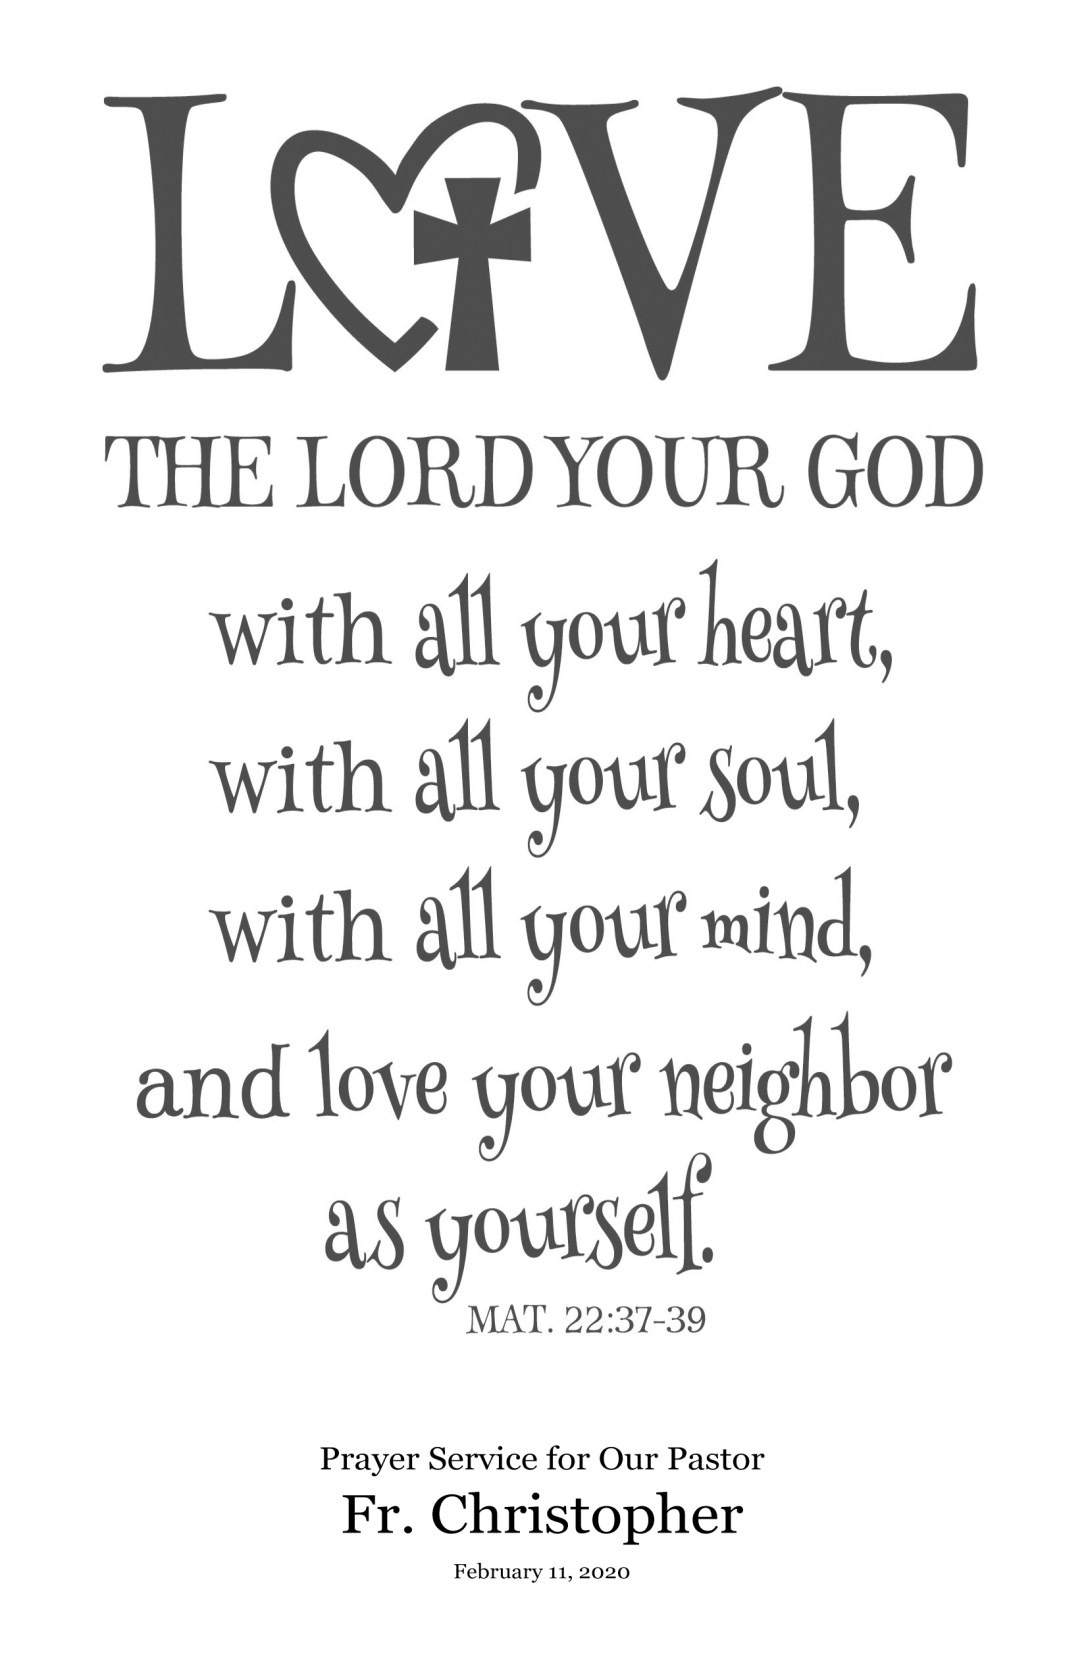 LOVE
THE LORD YOUR GOD
with all your heart,
with all your soul,
with all your mind,
and love your neighbor
as yourself.
MAT. 22:37-39
Prayer Service for Our Pastor
Fr. Christopher
February 11, 2020